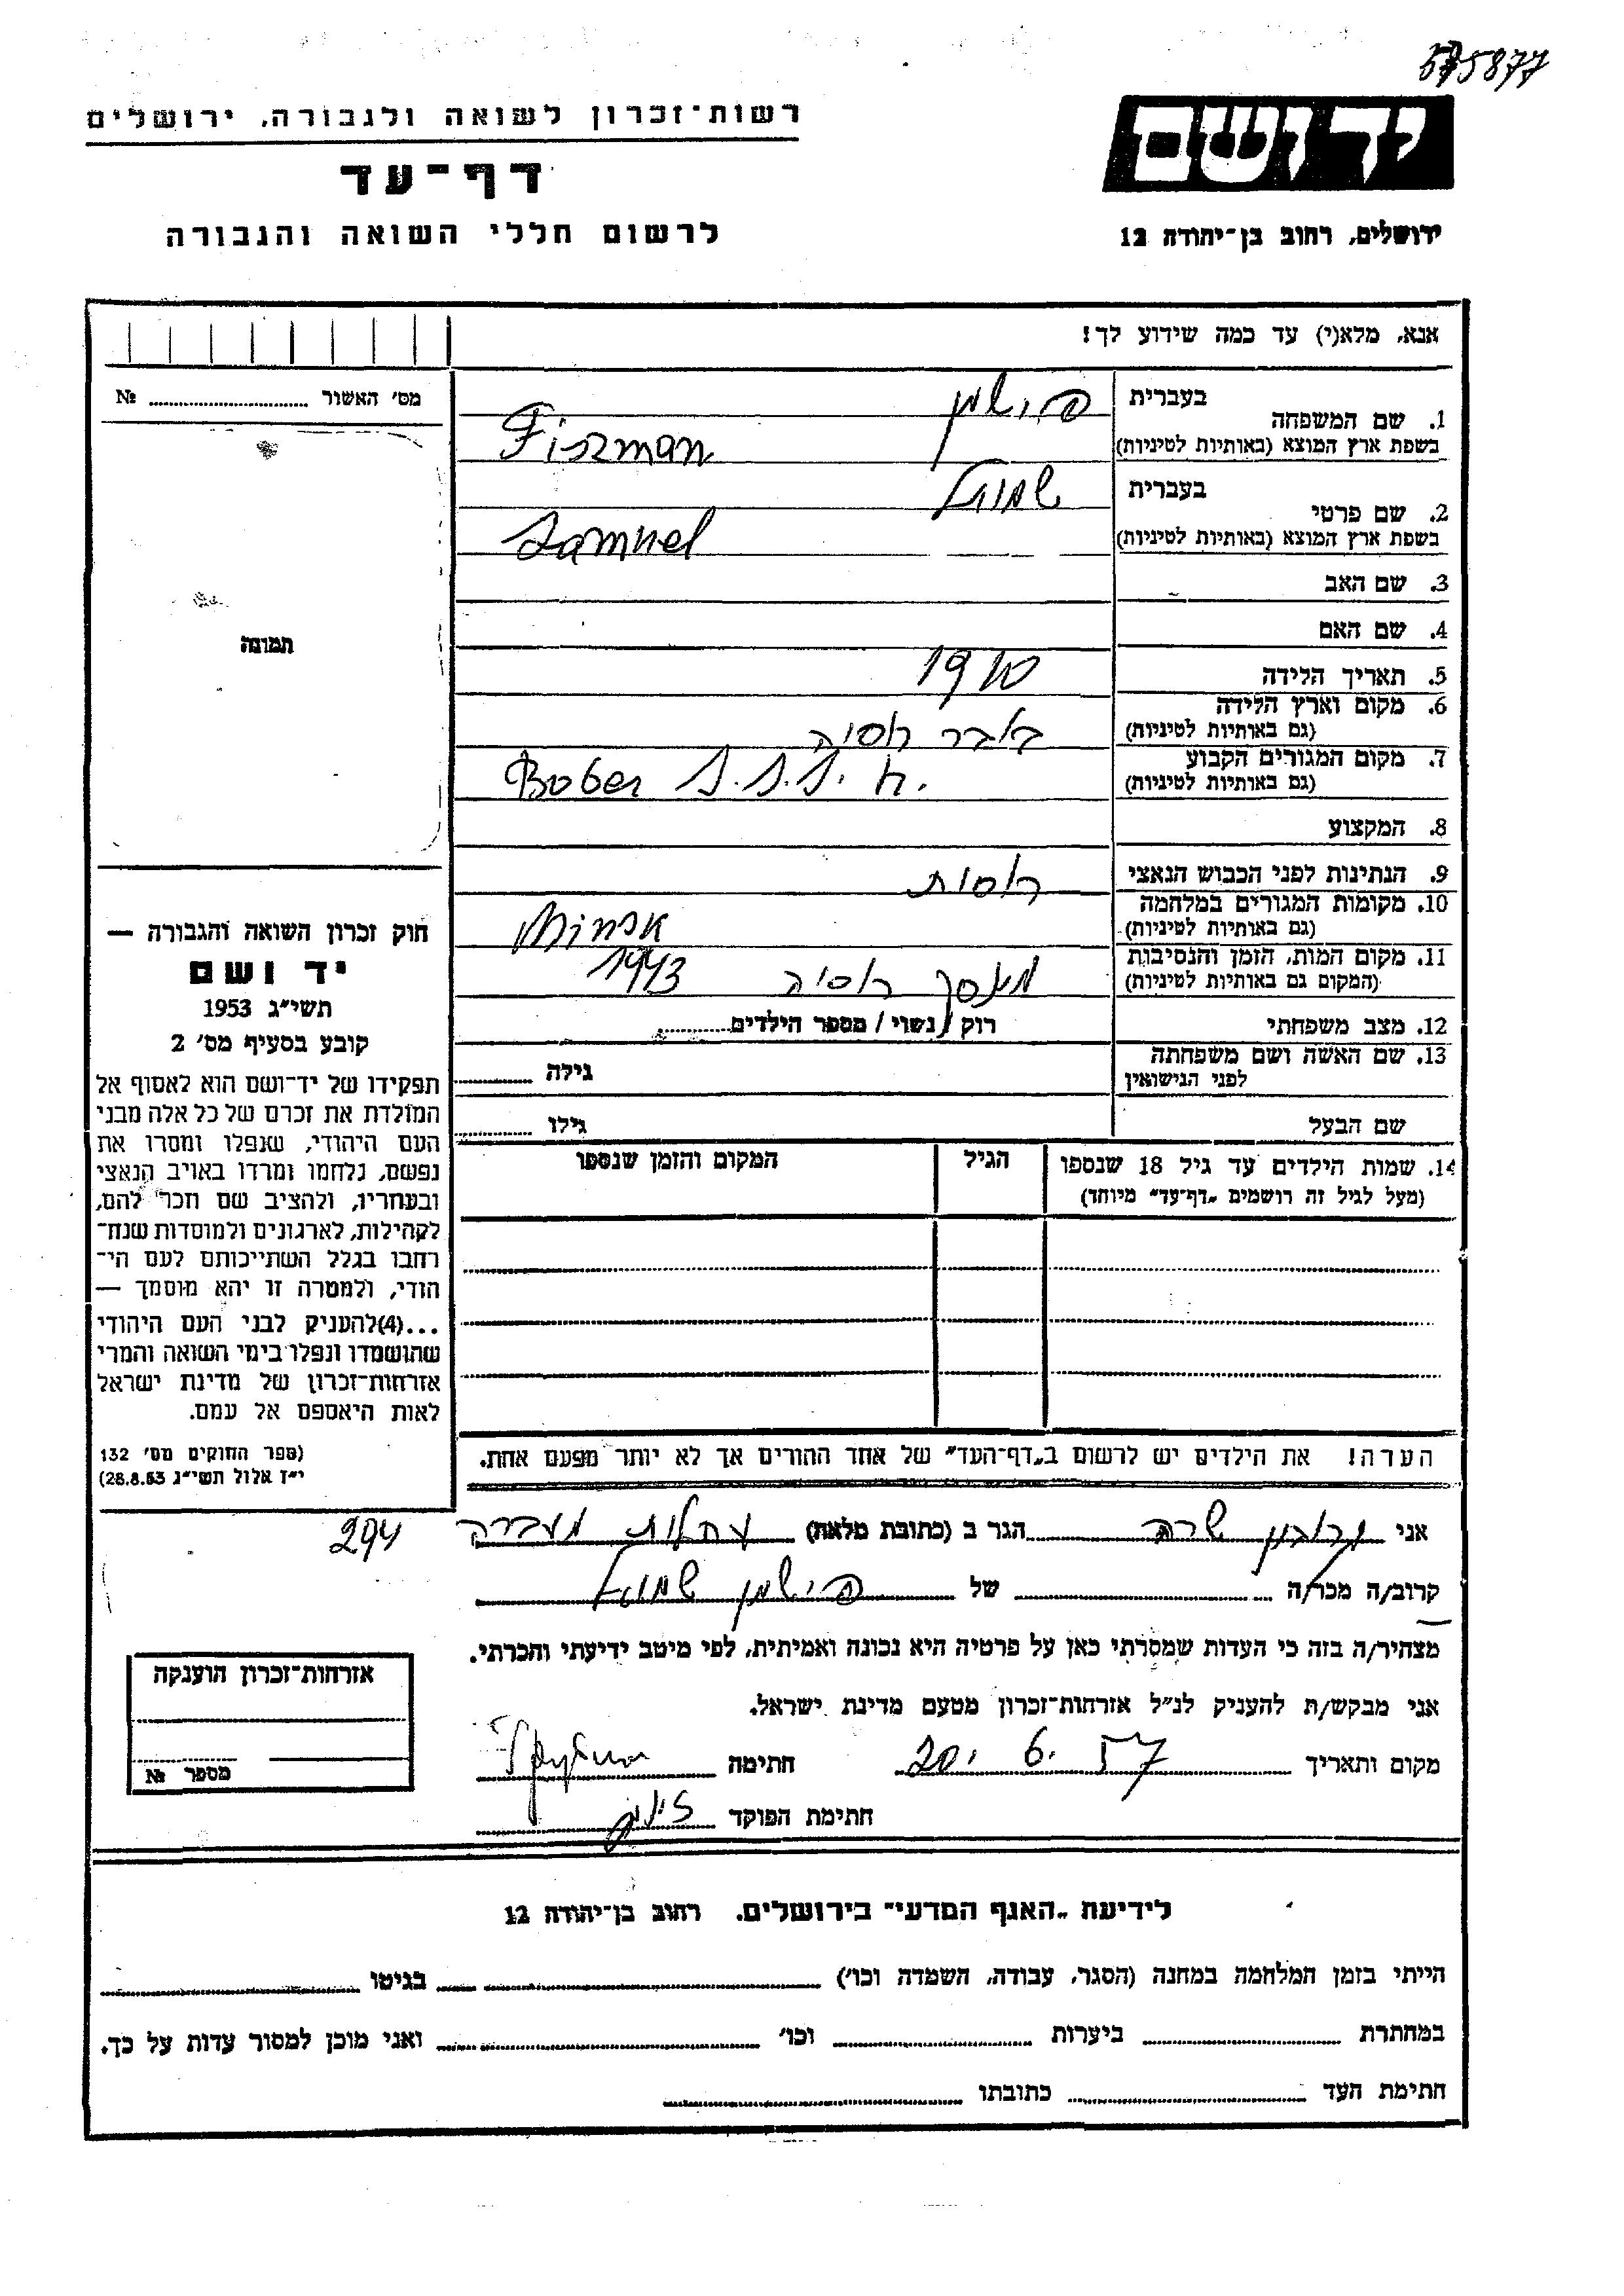 575877
רשות־זכרון לשואה ולגבורה, ירושלים
דף־עד
לרשום חללי השואה והגבורה
יד ושם
ירושלים, רחוב בן־יהודה 12
אנא, מלא(י) עד כמה שידוע לך!
מס׳ האשור № 
תמונה
1. שם המשפחה
בעברית פישמן
בשפת ארץ המוצא (באותיות לטיניות) Fiszman
2. שם פרטי
בעברית שמואל
בשפת ארץ המוצא (באותיות לטיניות) Samuel
3. שם האב
4. שם האם
5. תאריך הלידה 1910
6. מקום וארץ הלידה
(גם באותיות לטיניות) באבר רוסיה
7. מקום המגורים הקבוע
(גם באותיות לטיניות) Bober
8. המקצוע
9. הנתינות לפני הכבוש הנאצי רוסית
10. מקומות המגורים במלחמה
(גם באותיות לטיניות) Minsk
11. מקום המות, הזמן והנסיבות
(המקום גם באותיות לטיניות) מינסק רוסיה 1943
12. מצב משפחתי רוק / נשוי / מספר הילדים
13. שם האשה ושם משפחתה
לפני הנישואין גילה
שם הבעל גילו
14. שמות הילדים עד גיל 18 שנספו
(מעל לגיל זה רושמים „דף־עד״ מיוחד)
הגיל
המקום והזמן שנספו
הערה! את הילדים יש לרשום ב„דף־העד״ של אחד ההורים אך לא יותר מפעם אחת.
חוק זכרון השואה והגבורה —
יד ושם
תשי״ג 1953
קובע בסעיף מס׳ 2
תפקידו של יד־ושם הוא לאסוף אל
המולדת את זכרם של כל אלה מבני
העם היהודי, שנפלו ומסרו את
נפשם, נלחמו ומרדו באויב הנאצי
ובעוזריו, ולהציב שם וזכר להם,
לקהילות, לארגונים ולמוסדות שנח־
רבו בגלל השתייכותם לעם הי־
הודי, ולמטרה זו יהא מוסמך —
...(4)להעניק לבני העם היהודי
שהושמדו ונפלו בימי השואה והמרי
אזרחות־זכרון של מדינת ישראל
לאות היאספם אל עמם.
(ספר החוקים מס׳ 132
י״ז אלול תשי״ג 28.8.53)
294
אני שרה הגר ב (כתובת מלאה) עתלית מעברה
קרוב/ה מכר/ה של פישמן שמואל
מצהיר/ה בזה כי העדות שמסרתי כאן על פרטיה היא נכונה ואמיתית, לפי מיטב ידיעתי והכרתי.
אני מבקש/ת להעניק לנ״ל אזרחות־זכרון מטעם מדינת ישראל.
מקום ותאריך 20. 6. 57 חתימה
חתימת הפוקד
אזרחות־זכרון הוענקה
מספר №
לידיעת „האגף המדעי״ בירושלים, רחוב בן־יהודה 12
הייתי בזמן המלחמה במחנה (הסגר, עבודה, השמדה וכו׳) בגיטו
במחתרת ביערות וכו׳ ואני מוכן למסור עדות על כך.
חתימת העד כתובתו